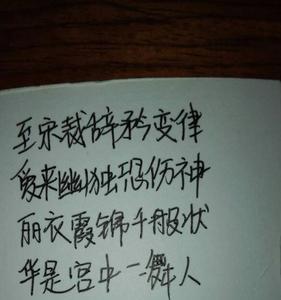 至宋裁辞矜变律
爱来幽独恐伤神
丽衣霞锦千般状
华是宫中一舞人